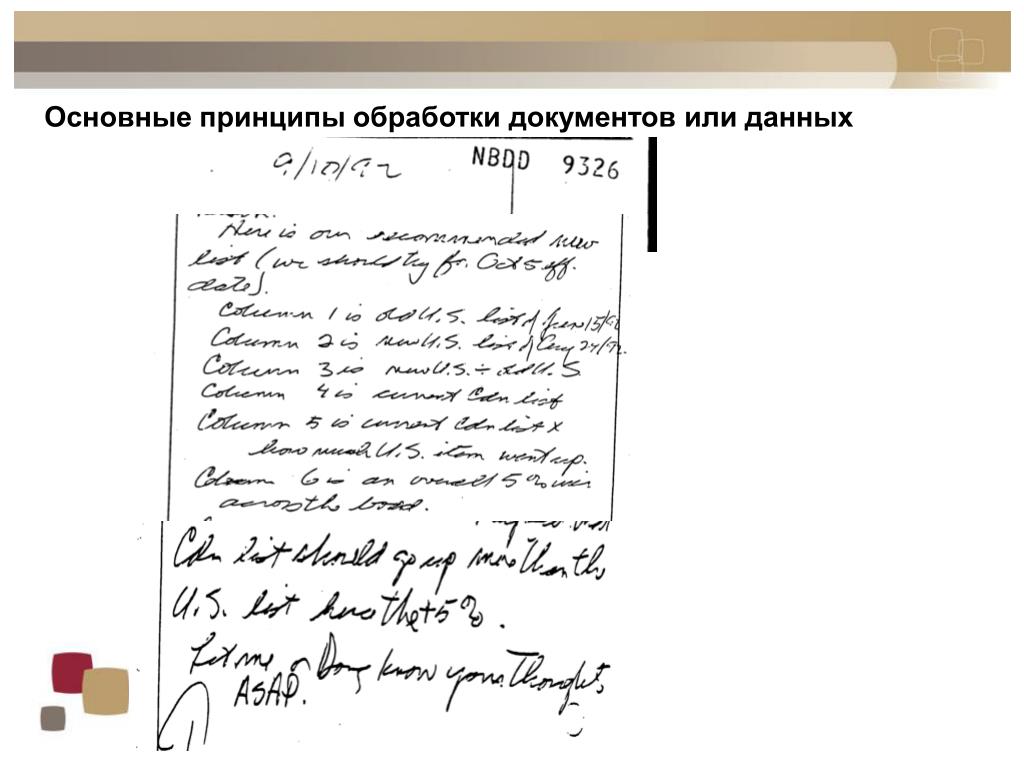 Основные принципы обработки документов или данных
9/10/92 NBDD 9326
Here is our recommended new
list (we should try for Oct 5 eff.
date).
Column 1 is old U.S. list of June 15/92
Column 2 is new U.S. list of Aug 24/92.
Column 3 is new U.S. ÷ old U.S.
Column 4 is current Cdn list
Column 5 is current Cdn list x
how much U.S. item went up.
Column 6 is an overall 5% incr
across the board.
Cdn list should go up more than the
U.S. list hence the +5%.
Let me or Doug know your thoughts
ASAP.